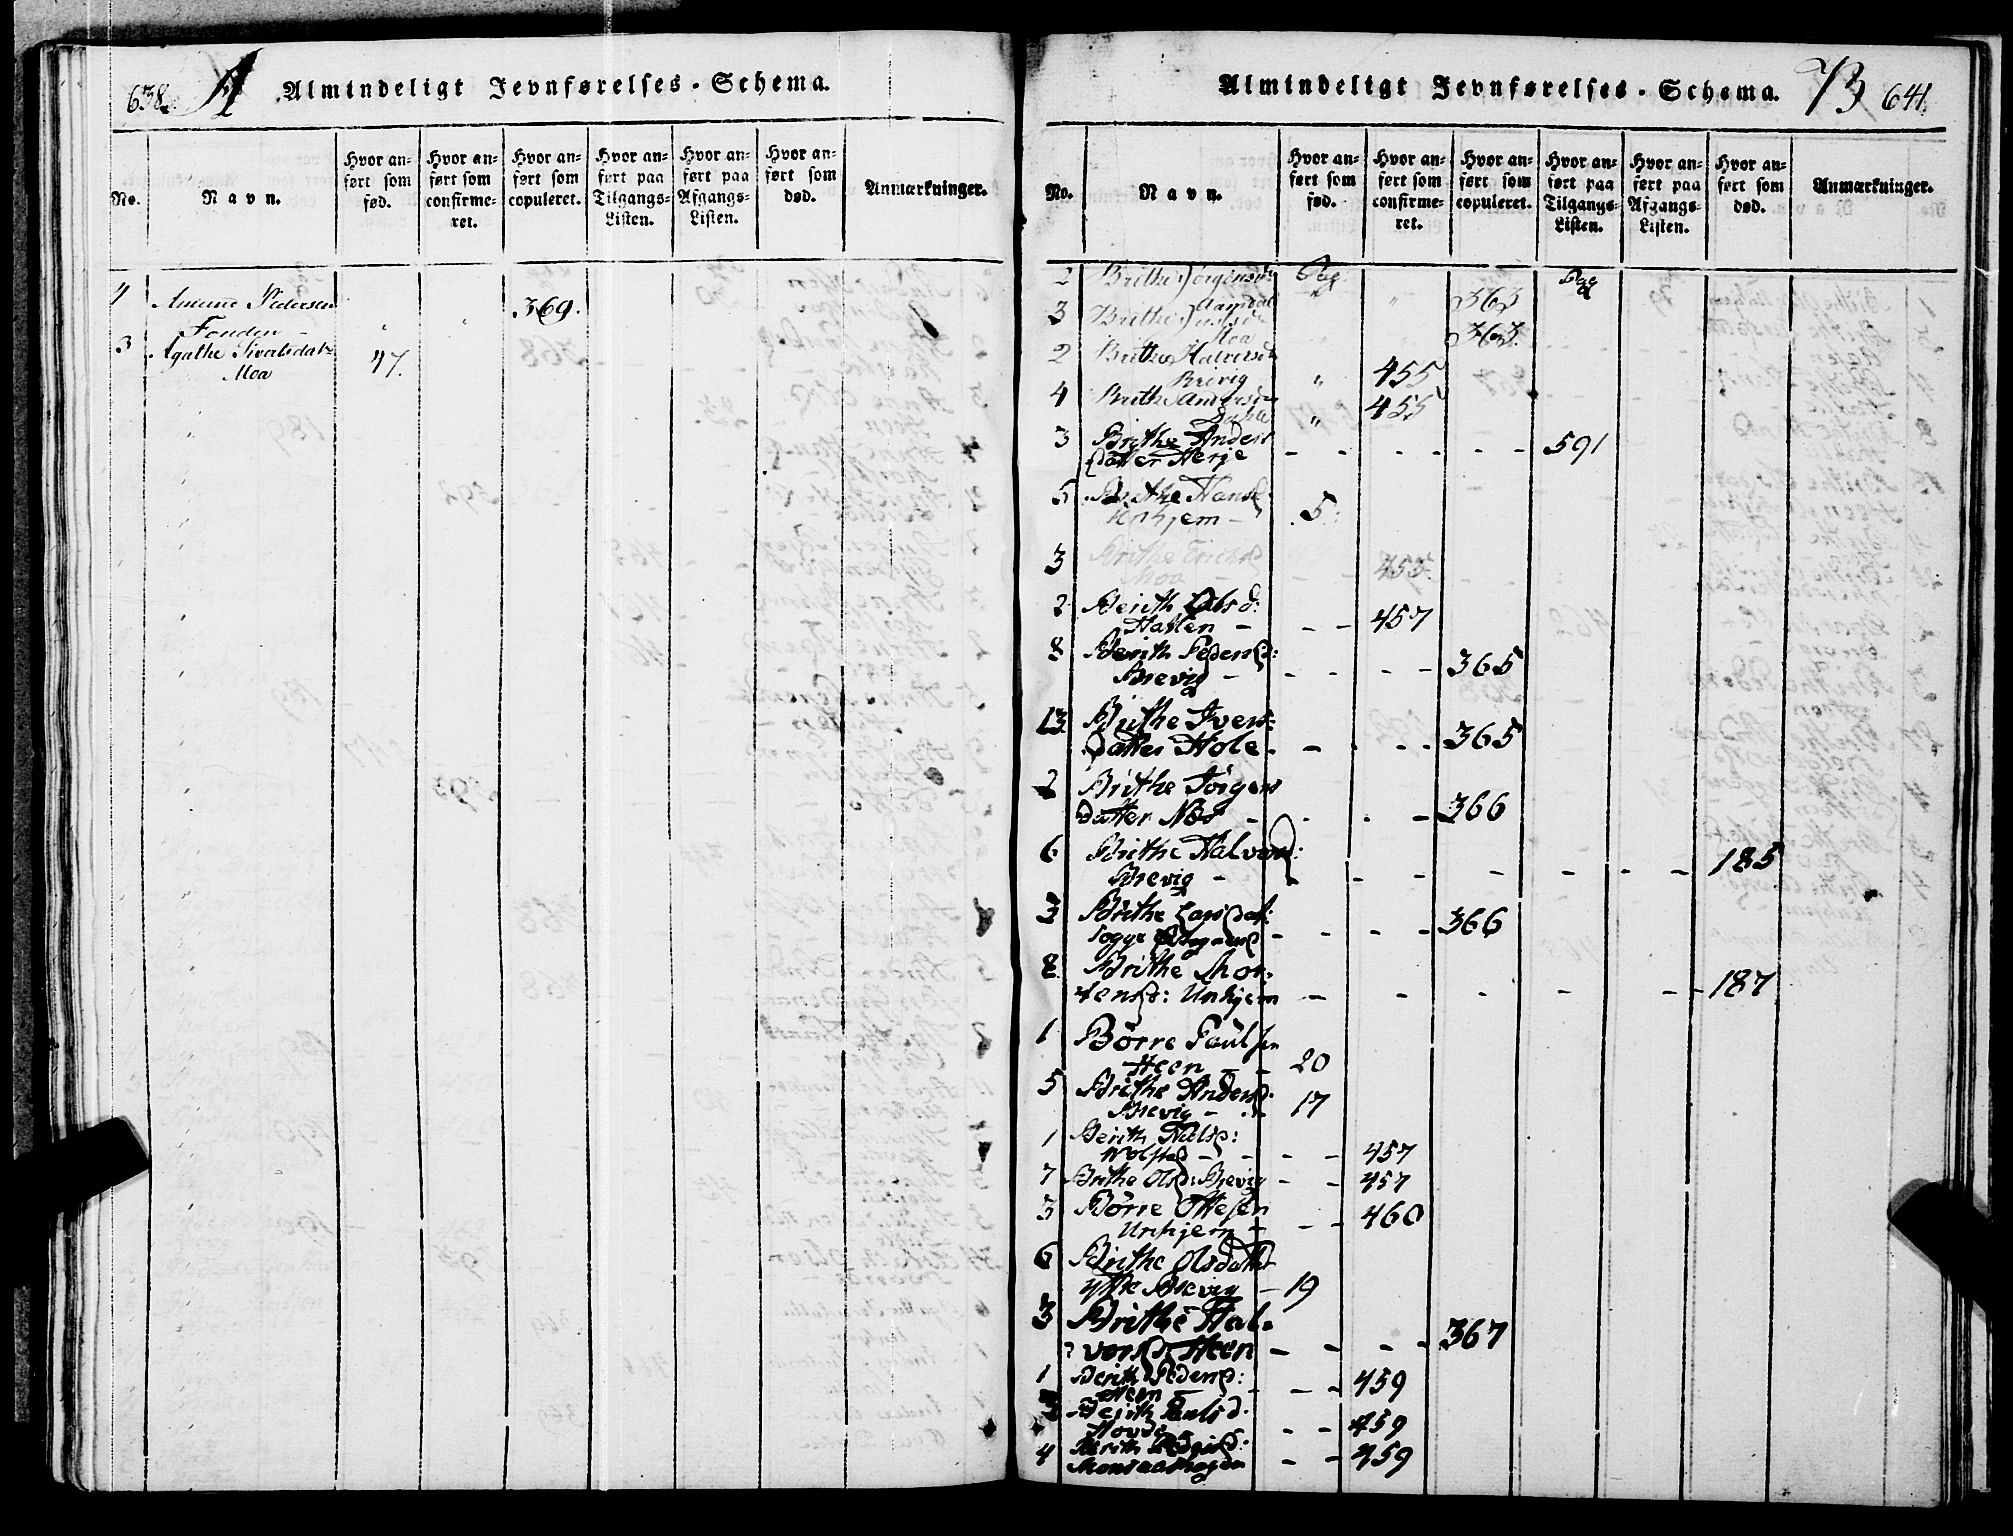 638. A Almindeligt Jevnførelses-Schema.
No. Navn. Hvor anført som fød. Hvor anført som confirmeret. Hvor anført som copuleret. Hvor anført paa Tilgangs-Listen. Hvor anført paa Afgangs-Listen. Hvor anført som død. Anmærkninger.
4 Pedersen
" " 369.
3 Agathe Sivertsdatr
Moa 47.
Almindeligt Jevnførelses-Schema. B 641.
No. Navn. Hvor anført som fød. Hvor anført som confirmeret. Hvor anført som copuleret. Hvor anført paa Tilgangs-Listen. Hvor anført paa Afgangs-Listen. Hvor anført som død. Anmærkninger.
2 Brithe Jörgensd: Pag Pag
" " 363
3 Brithe
Moa 363.
2 Brithe Halvorsd
Brevig " 455
4 Brithe Andersd
" 455
3 Brithe Anders
datter Herje - - - - - - 591
5 Brithe Hansd
Unhjem - 5:
3 Brithe Ericsd
Moa - - - 455.
2 Berith Olsd:
Hatlen - - - 457
8 Berith Pedersd:
Brevig - - - - - 365
13 Brithe Ivers-
datter Hole - - - - 365
2 Brithe Jörgens
datter Næs - - - - 366
6 Brithe Halvorsd:
Brevig - - - - - - - - 185
3 Brithe Larsdat:
- - - - 366
8 Brithe Mor-
tensd: Unhjem - - - - - - 187
1 Börre Paulsen
Heen - - 20
5 Brithe Andersd:
Brevig - - 17
1 Berith Nielsd:
Wolstad - - - - 457
7 Brithe Olsd: Brevig - - 457
3 Börre Ottesen
Unhjem - - - 460
6 Brithe Olsdatter
Brevig - 19
3 Brithe Hal-
vorsd: Heen - - - - 367
1 Berith Pedersd:
Heen - - - - 459
Berith Paulsd:
Hovde - - 459
4 Berith
- - 459